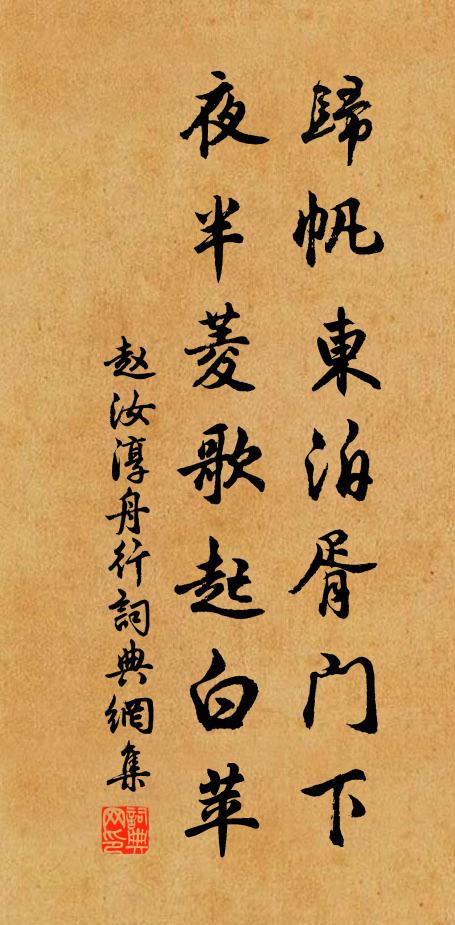 歸帆東泊胥門下
夜半菱歌起白苹
赵汝淳舟行詞典網集
詞典网印